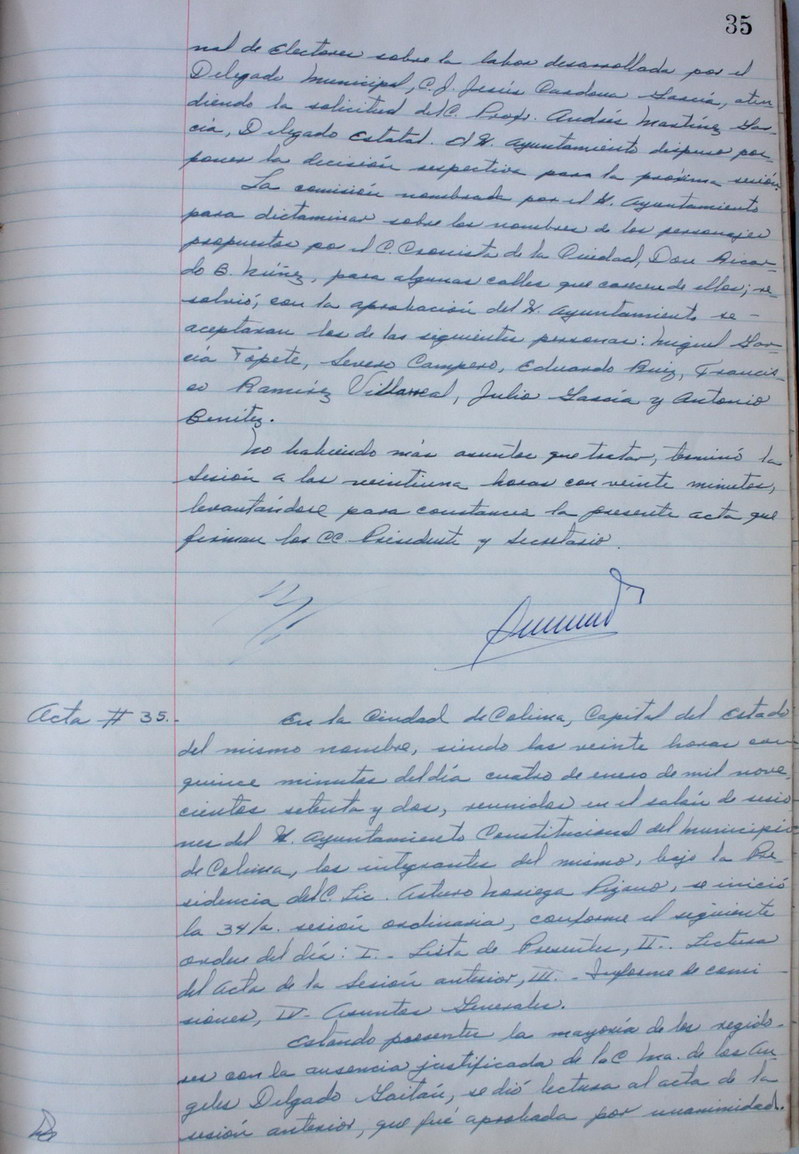 35
nal de Electores sobre la labor desarrollada por el
Delegado Municipal, C. J. Jesús Cardona García, aten
diendo la solicitud del C. Profr. Andrés Martínez Gar-
cía, Delegado Estatal. El H. Ayuntamiento dispuso pos-
poner la decisión respectiva para la próxima sesión.
La comisión nombrada por el H. Ayuntamiento
para dictaminar sobre los nombres de los personajes
propuestos por el C. Cronista de la Ciudad, Don Ricar-
do B. Núñez, para algunas calles que carecen de ellos; re-
solvió, con la aprobación del H. Ayuntamiento se -
aceptaran los de las siguientes personas: Miguel Gar-
cía Topete, Severo Campero, Eduardo Ruiz, Francis-
co Ramírez Villarreal, Julio García y Antonio
Benítez.
No habiendo más asuntos que tratar, terminó la
sesión a las veintiuna horas con veinte minutos,
levantándose para constancia la presente acta que
firman los CC. Presidente y Secretario.
Acta # 35.-
En la Ciudad de Colima, Capital del Estado
del mismo nombre, siendo las veinte horas con
quince minutos del día cuatro de enero de mil nove-
cientos setenta y dos, reunidos en el salón de sesio
nes del H. Ayuntamiento Constitucional del Municipio
de Colima, los integrantes del mismo, bajo la Pre-
sidencia del C. Lic. Arturo Noriega Pizano, se inició
la 34/a. sesión ordinaria, conforme el siguiente
orden del día: I.- Lista de Presentes, II.- Lectura
del Acta de la Sesión anterior, III.- Informe de comi -
siones, IV- Asuntos Generales.
Estando presentes la mayoría de los regido-
res con la ausencia justificada de la C. Ma. de los An-
geles Delgado Gaitán, se dió lectura al acta de la
sesión anterior, que fué aprobada por unanimidad.